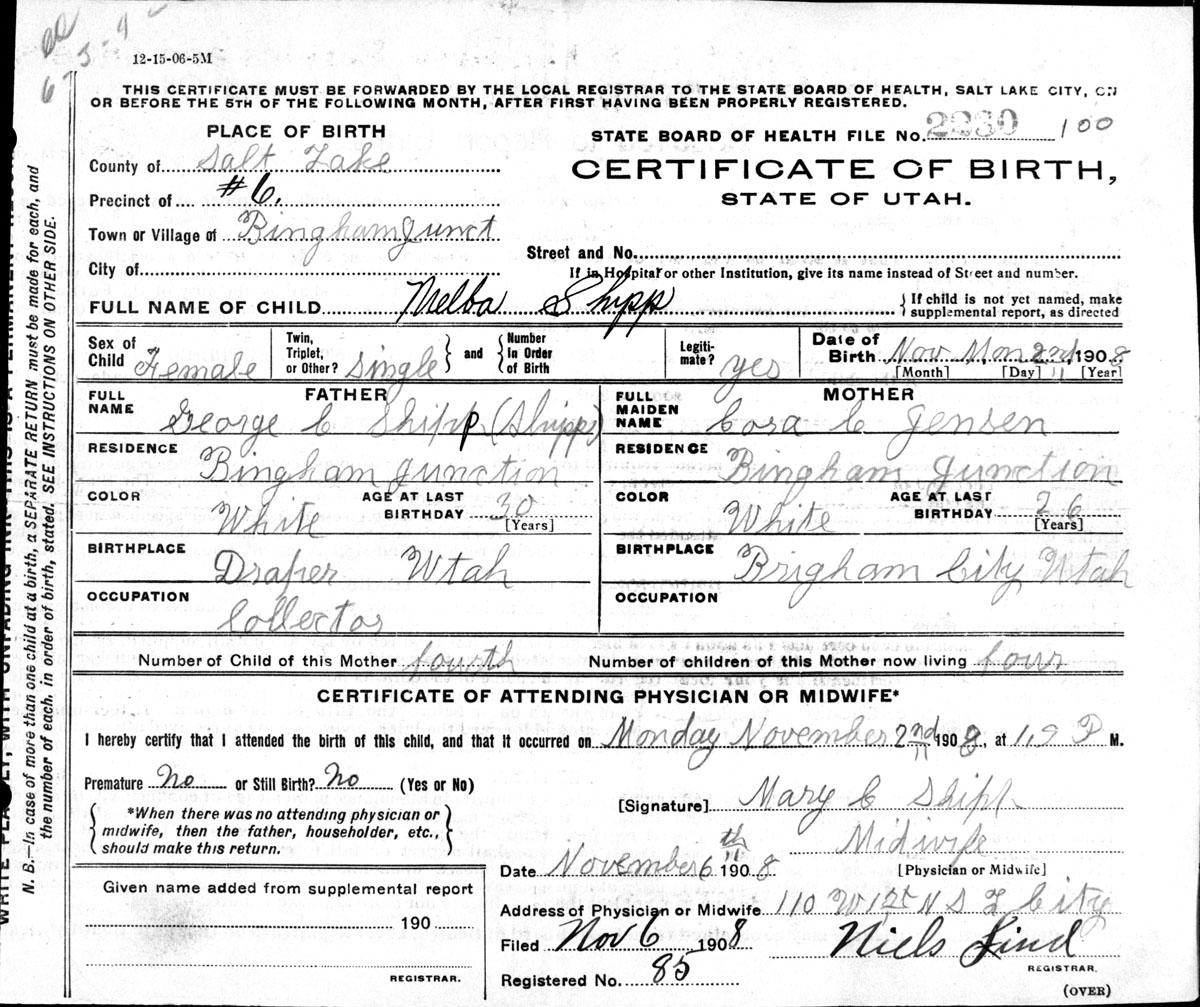 12-15-06-5M
THIS CERTIFICATE MUST BE FORWARDED BY THE LOCAL REGISTRAR TO THE STATE BOARD OF HEALTH, SALT LAKE CITY, ON
OR BEFORE THE 5TH OF THE FOLLOWING MONTH, AFTER FIRST HAVING BEEN PROPERLY REGISTERED.
PLACE OF BIRTH
County of Salt Lake
Precinct of #6.
Town or Village of Bingham Junct
City of
STATE BOARD OF HEALTH FILE No. 2230 100
CERTIFICATE OF BIRTH,
STATE OF UTAH.
Street and No.
If in Hospital or other Institution, give its name instead of Street and number.
FULL NAME OF CHILD Melba Shipp
If child is not yet named, make
supplemental report, as directed
Sex of Child Female
Twin, Triplet, or Other? Single and Number In Order of Birth
Legiti-mate? yes
Date of Birth Nov Mon 2nd, 1908
[Month] [Day] [Year]
FATHER
FULL NAME George C Shipp (Shipp)
RESIDENCE Bingham Junction
COLOR White
AGE AT LAST BIRTHDAY 30
[Years]
BIRTHPLACE Draper Utah
OCCUPATION Collector
MOTHER
FULL MAIDEN NAME Cora C Jensen
RESIDENCE Bingham Junction
COLOR White
AGE AT LAST BIRTHDAY 26
[Years]
BIRTHPLACE Brigham City Utah
OCCUPATION
Number of Child of this Mother fourth
Number of children of this Mother now living four
CERTIFICATE OF ATTENDING PHYSICIAN OR MIDWIFE*
I hereby certify that I attended the birth of this child, and that it occurred on Monday November 2nd 1908, at P M.
Premature No or Still Birth? No (Yes or No)
*When there was no attending physician or
midwife, then the father, householder, etc.,
should make this return.
[Signature] Mary C Shipp
Midwife
[Physician or Midwife]
Date November 6th 1908
Address of Physician or Midwife 110 W 1st N S L City
Given name added from supplemental report
190
REGISTRAR.
Filed Nov 6 1908
Niels Lind
REGISTRAR.
Registered No. 85
(OVER)
N. B.—In case of more than one child at a birth, a SEPARATE RETURN must be made for each, and
the number of each, in order of birth, stated. SEE INSTRUCTIONS ON OTHER SIDE.